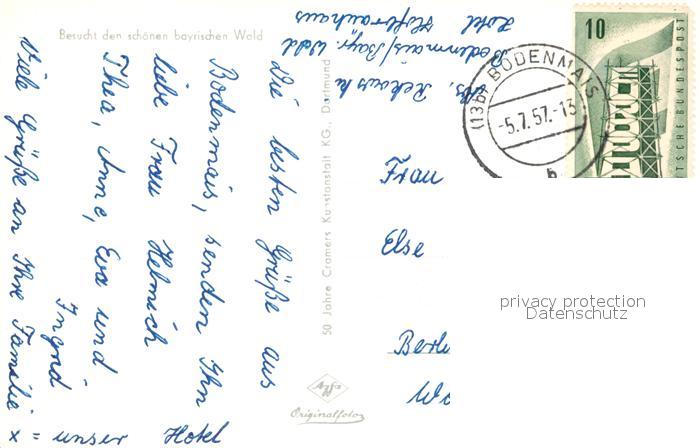 Besucht den schönen bayrischen Wald
Hotel Hofbräuhaus
Bodenmais/Bayr. Wald
Die besten Grüße aus
Bodenmais, senden Ihn
liebe Frau Helmich
Thea, Anne, Eva und
Ingrid
Viele Grüße an Ihre Familie
x = unser Hotel
50 Jahre Cramers Kunstanstalt KG., Dortmund
Agfa
Originalfoto
10
DEUTSCHE BUNDESPOST
(13b) BODENMAIS
-5.7.57.-13
b
Frau
Else
Berli
privacy protection
Datenschutz